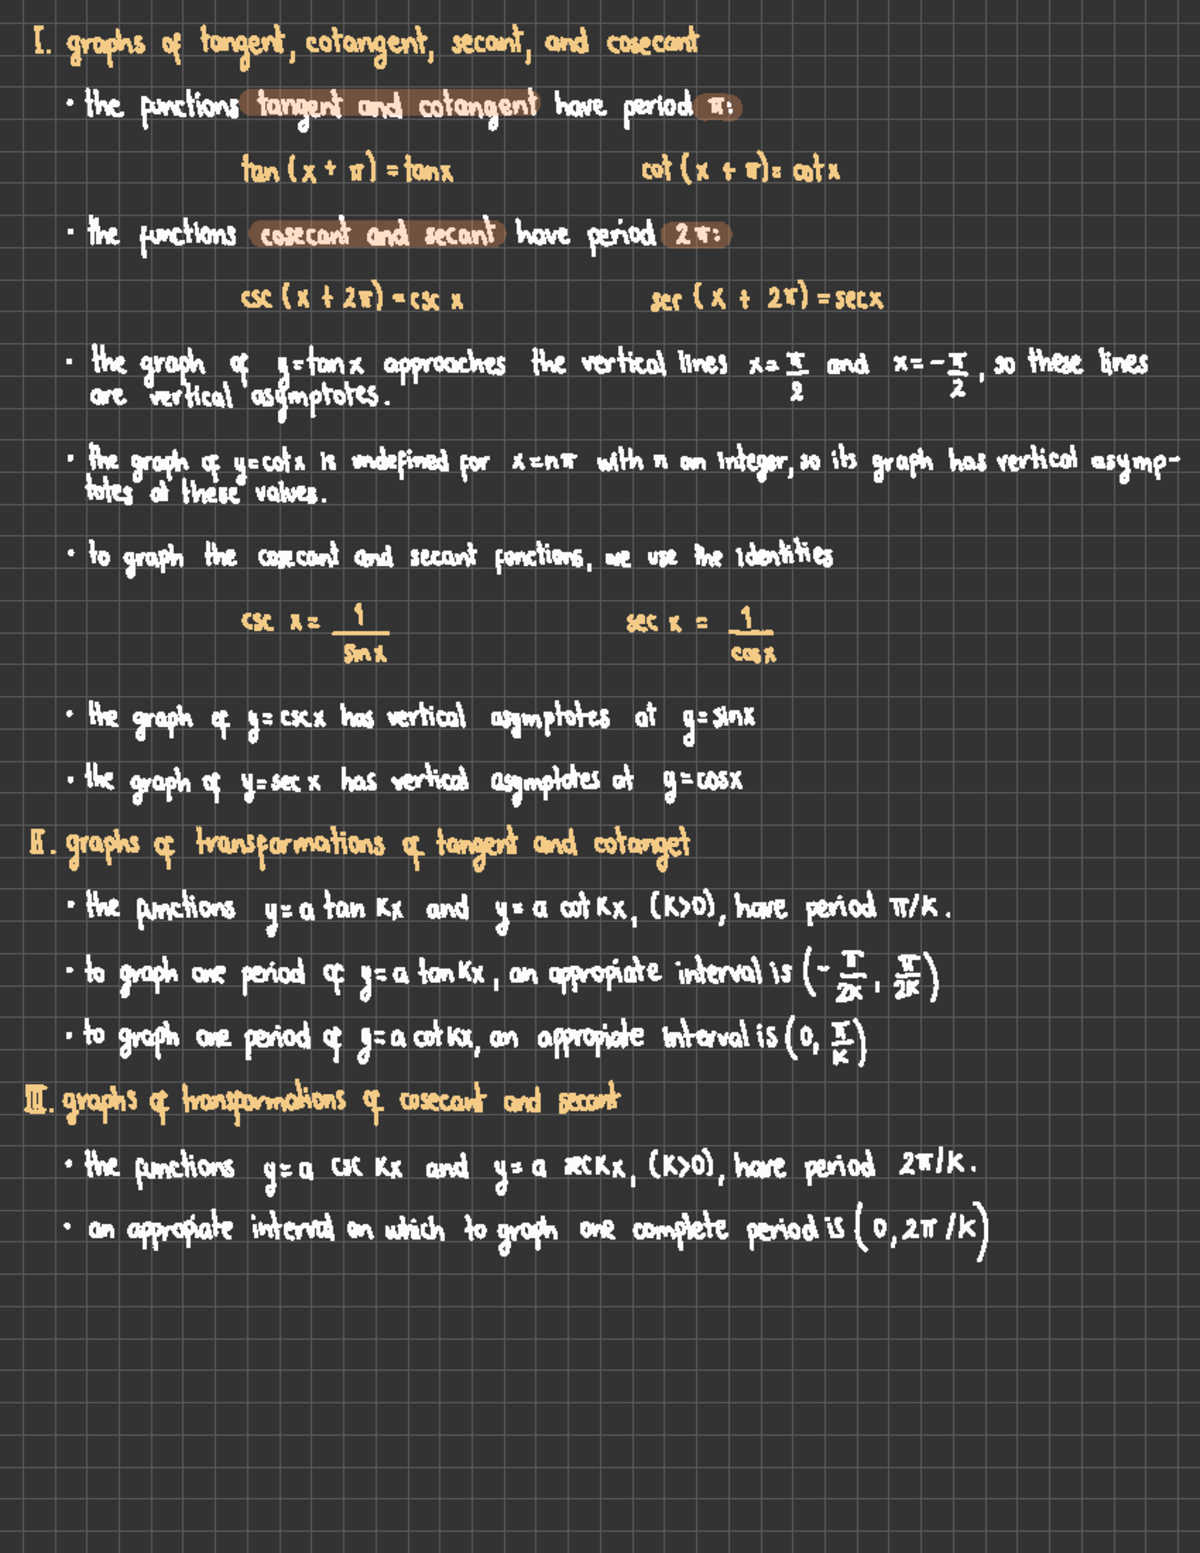 I. graphs of tangent, cotangent, secant, and cosecant
· the functions tangent and cotangent have period π:
tan (x + π) = tanx cot (x + π) = cotx
· the functions cosecant and secant have period 2π:
csc (x + 2π) = csc x sec (x + 2π) = secx
· the graph of y=tanx approaches the vertical lines x=π/2 and x=-π/2, so these lines
are vertical asymptotes.
· the graph of y=cotx is undefined for x=nπ with n an integer, so its graph has vertical asymp-
totes at these values.
· to graph the cosecant and secant functions, we use the identities
csc x = 1/sinx sec x = 1/cosx
· the graph of y=cscx has vertical asymptotes at y=sinx
· the graph of y=sec x has vertical asymptotes at y=cosx
II. graphs of transformations of tangent and cotanget
· the functions y=a tan Kx and y=a cot Kx, (K>0), have period π/K.
· to graph one period of y=a tanKx, an appropiate interval is (-π/2K, π/2K)
· to graph one period of y=a cot Kx, an appropiate interval is (0, π/K)
III. graphs of transformations of cosecant and secant
· the functions y=a csc Kx and y=a secKx, (K>0), have period 2π/K.
· an appropiate interval on which to graph one complete period is (0, 2π/K)